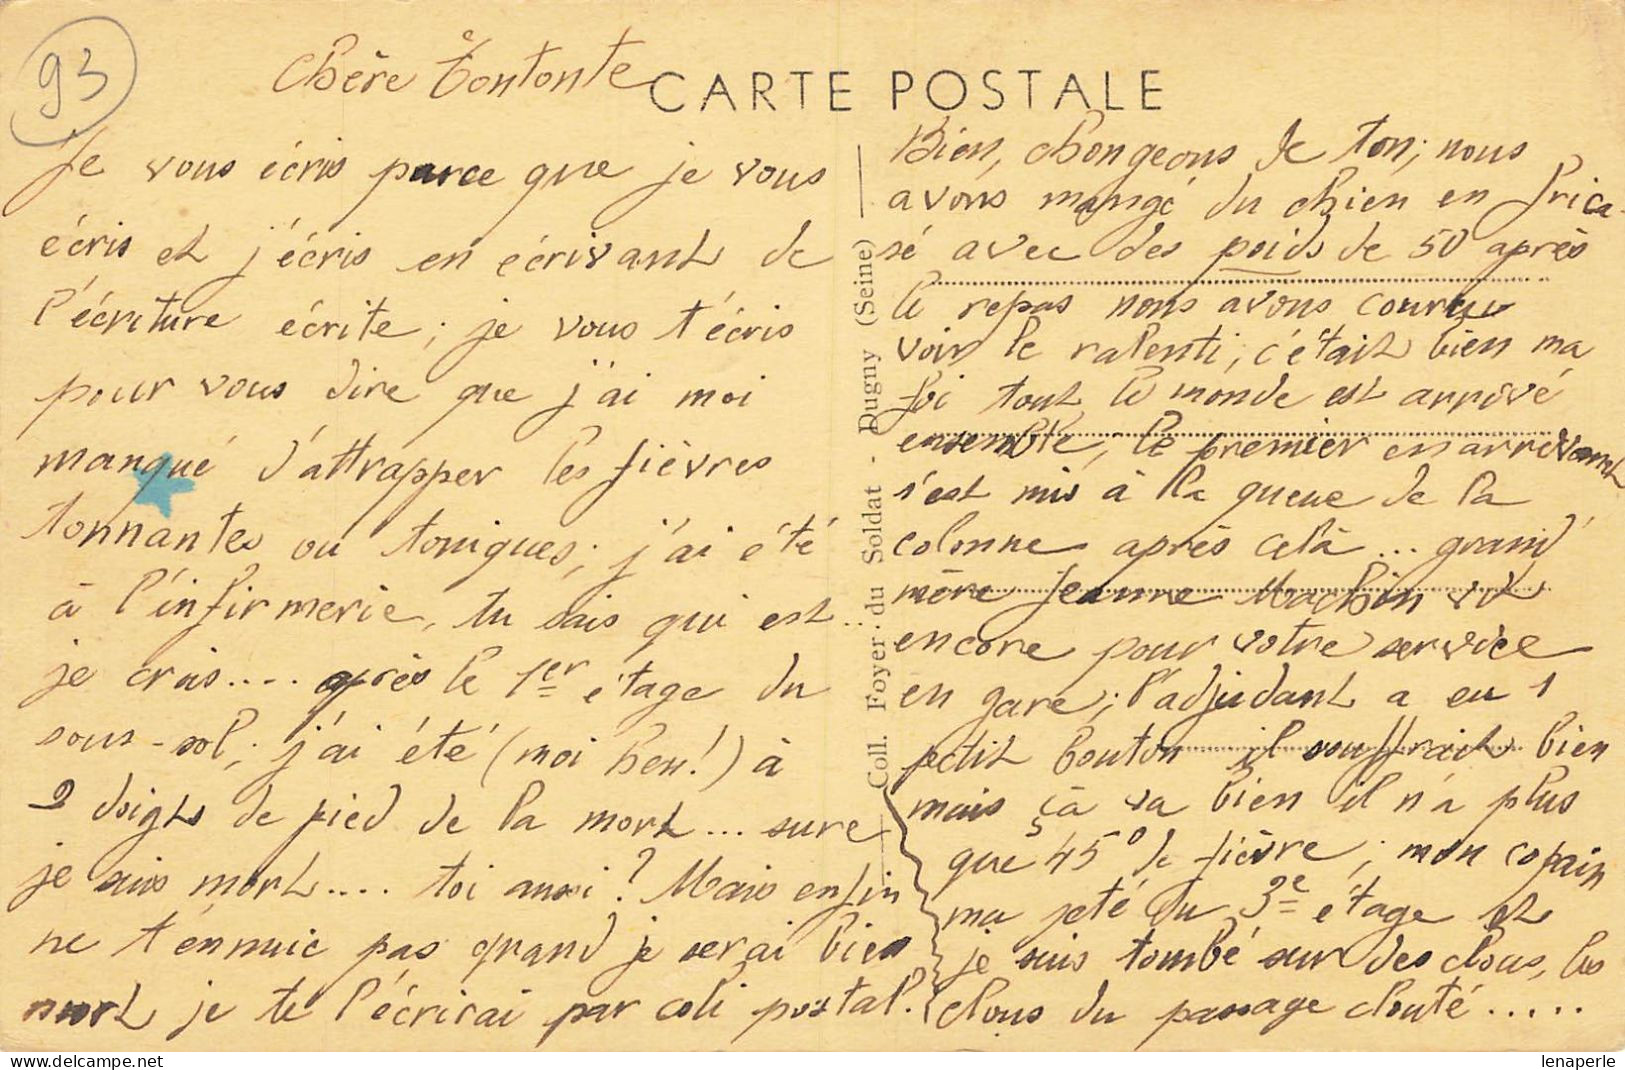 93
Chère Tontonte
CARTE POSTALE
Je vous écris parce que je vous
écris et j'écris en écrivant de
l'écriture écrite ; je vous t'écris
pour vous dire que j'ai moi
manqué d'attrapper les fièvres
tonnantes ou toniques ; j'ai été
à l'infirmerie, tu sais qui est..
je crois.... après le 1er étage du
sous-sol ; j'ai été (moi hen!) à
2 doigts de pied de la mort... sure
je suis mort.... toi aussi ? Mais enfin
ne t'énnuie pas quand je serai bien
mort je te l'écrirai par coli postal.
Coll. Foyer du Soldat . Dugny (Seine)
Bien, changeons de ton ; nous
avons mangé du chien en frica-
sé avec des poids de 50 après
le repas nous avons couru
voir le ralenti ; c'était bien ma
foi tout le monde est arrivé
ensemble, le premier en arrivant
s'est mis à la queue de la
colonne après celà ... grand
mère Jeanne Machin vit
encore pour votre service
en gare ; l'adjudant a eu 1
petit bouton il souffrait bien
mais çà va bien il n'a plus
que 45° de fièvre ; mon copain
ma jeté du 3e étage et
je suis tombé sur des clous, les
clous du passage clouté .....
lenaperle